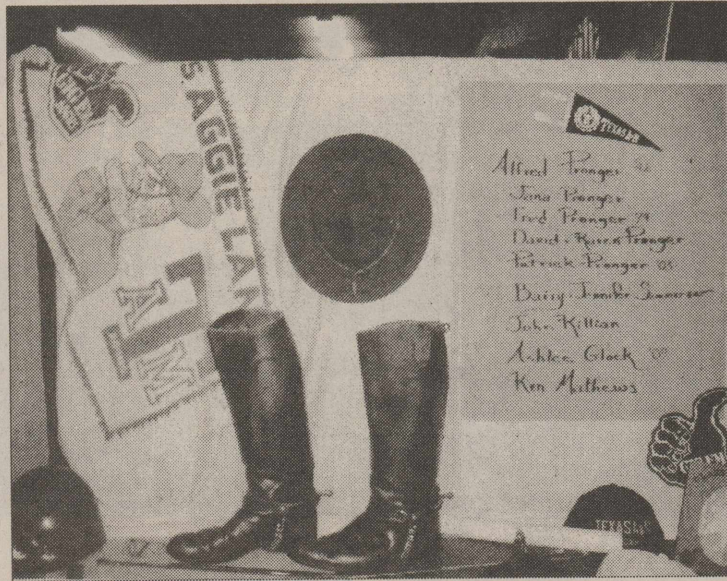 'S AGGIE LAN
TAM
TEXAS A&M
Alfred Pronger '42
Jana Pronger
Fred Pronger '74
David - Karen Pronger
Patrick Pronger '03
Barry - Jennifer
John Killian
Ashlee Glock '09
Ken Mathews
TEXAS A&M